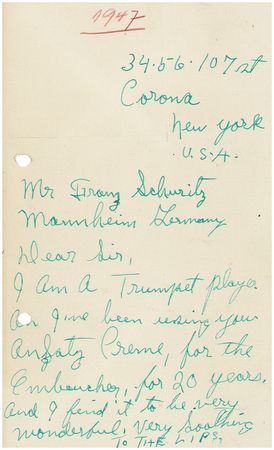 1947
34-56-107 st
Corona
New York
U.S.A.
Mr Franz Schuritz
Mannheim Germany
Dear Sir,
I Am A Trumpet player.
An I've been using your
Ansatz Creme, for the
Embouchey, for 20 years.
And I find it to be very
wonderful, very soothing
TO THE LIPS.